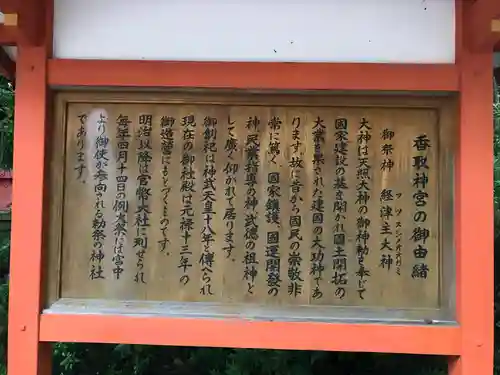 香取神宮の御由緒
フツヌシノオオカミ
御祭神 経津主大神
大神は天照大神の御神勅を奉じて
国家建設の基を開かれ国土開拓の
大業を果された建国の大功神であ
ります。故に昔から国民の崇敬非
常に篤く、国家鎮護、国運開発の
神、民業指導の神、武徳の祖神と
して広く仰がれて居ります。
御創祀は神武天皇十八年と傳へられ
現在の御社殿は元禄十三年の
御造營にもとづくものです。
明治以降は官幣大社に列せられ
毎年四月十四日の例大祭には宮中
より御使が参向される勅祭の神社
であります。